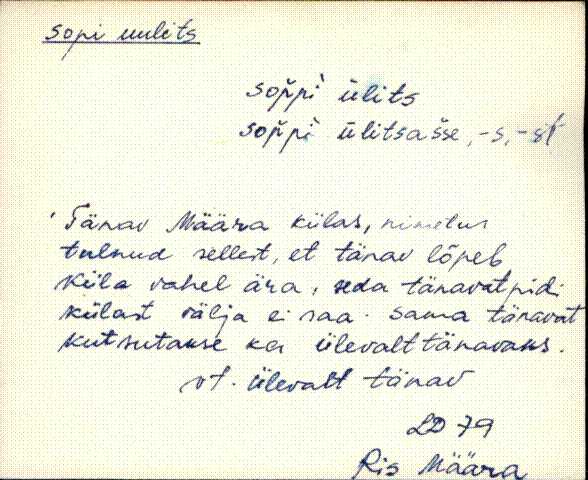 sopi uulits
soppì ülits
soppì ülitsašse, -s, -st
Tänav Määra külas, nimetus
tulnud sellest, et tänav lõpeb
küla vahel ära, seda tänavat pidi
külast välja ei saa. Sama tänavat
kutsutakse ka ülevalttänavaks.
vt. ülevalt tänav
LD 79
Ris Määra